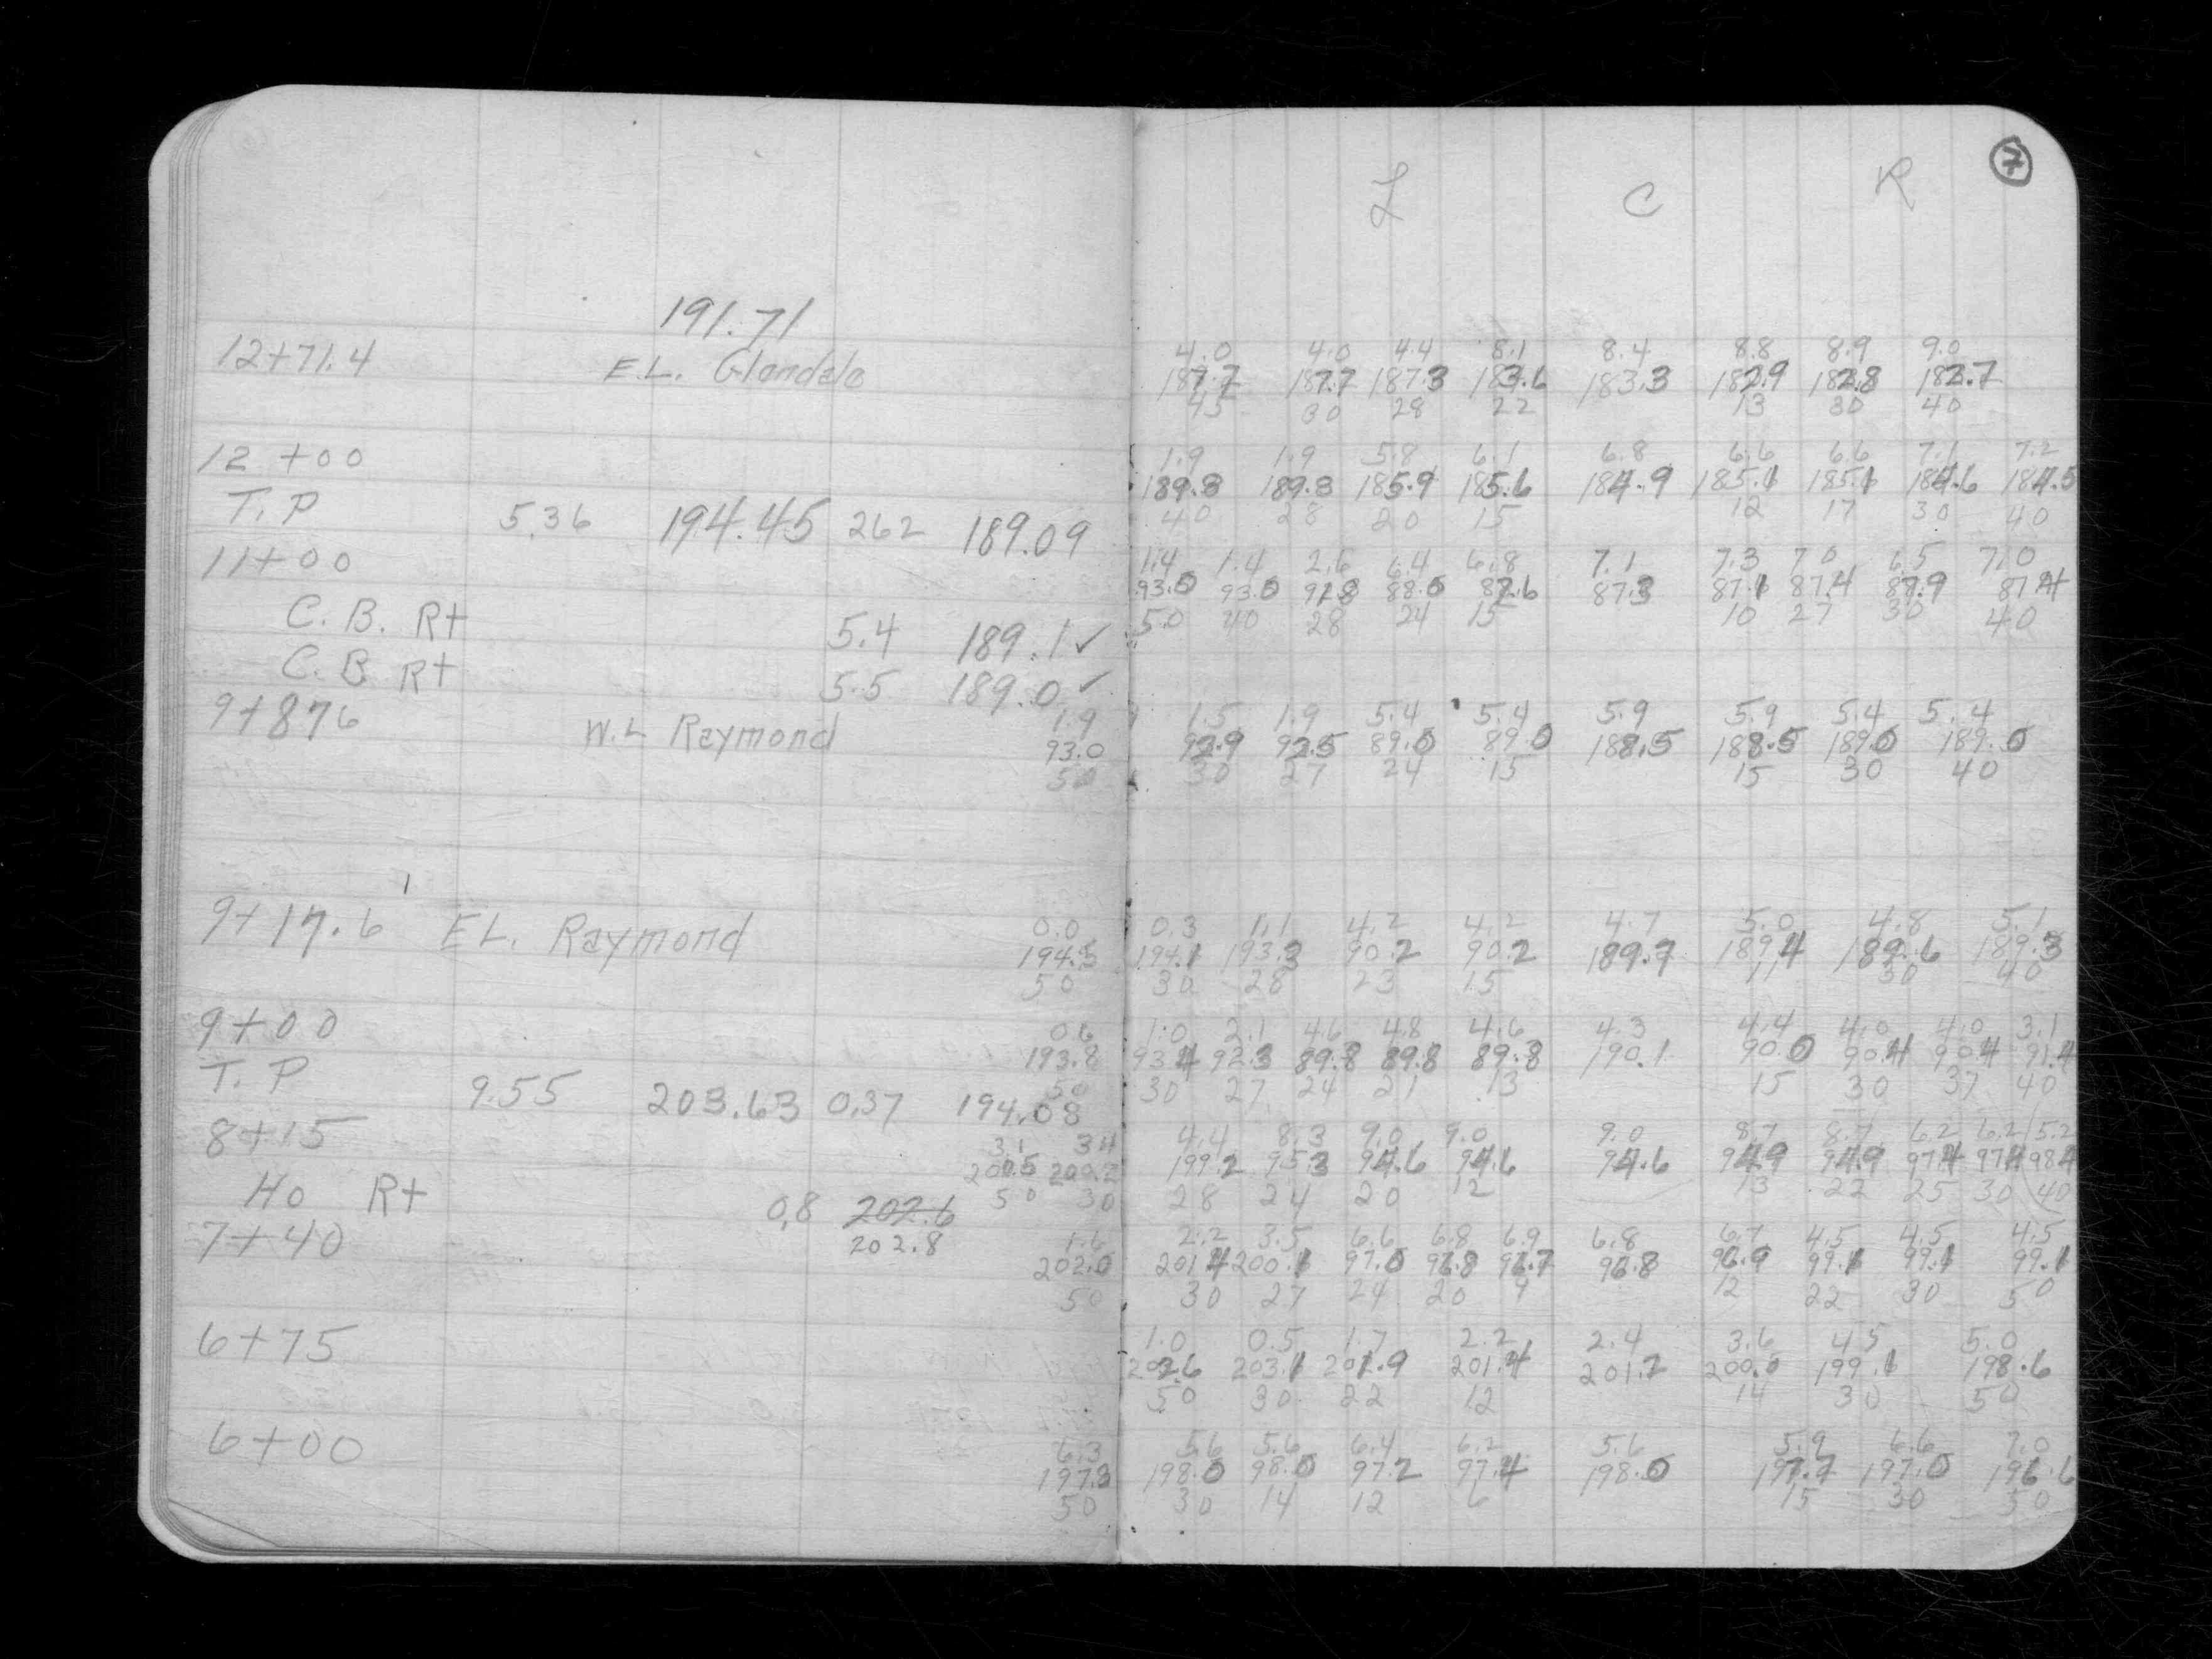 7
L C R
191.71
12+71.4 E.L. Glendale
4.0 4.0 4.4 8.1 8.4 8.8 8.9 9.0
187.7 187.7 187.3 183.6 183.3 182.9 182.8 182.7
45 30 28 22 13 30 40
12+00
1.9 1.9 5.8 6.1 6.8 6.6 6.6 7.1 7.2
189.8 189.8 185.9 185.6 184.9 185.1 185.1 184.6 184.5
40 28 20 15 12 17 30 40
T.P 5.36 194.45 262 189.09
11+00
1.4 1.4 2.6 6.4 6.8 7.1 7.3 7.0 6.5 7.0
93.0 93.0 91.8 88.0 87.6 87.3 87.1 87.4 87.9 87.4
50 40 28 24 15 10 27 30 40
C.B. Rt 5.4 189.1 ✓
C.B Rt 5.5 189.0 ✓
9+876 W.L Raymond
1.9 1.5 1.9 5.4 5.4 5.9 5.9 5.4 5.4
93.0 92.9 92.5 89.0 89.0 188.5 188.5 189.0 189.0
50 30 27 24 15 15 30 40
9+17.6' EL. Raymond
0.0 0.3 1.1 4.2 4.2 4.7 5.0 4.8 5.1
194.3 194.1 193.3 90.2 90.2 189.7 189.4 189.6 189.3
50 30 28 23 15 11 30 40
9+00
0.6 1.0 2.1 4.6 4.8 4.6 4.3 4.4 4.0 4.0 3.1
193.8 93.4 92.3 89.8 89.8 89.8 190.1 90.0 90.4 90.4 91.4
50 30 27 24 21 13 15 30 37 40
T.P 9.55 203.63 0.37 194.08
8+15
3.1 3.4 4.4 8.3 9.0 9.0 9.0 8.7 8.7 6.2 6.2 5.2
200.5 200.2 199.2 95.3 94.6 94.6 94.6 94.9 94.9 97.4 97.4 98.4
50 30 28 24 20 12 13 22 25 30 40
Ho Rt 0.8 202.6
202.8
7+40
1.6 2.2 3.5 6.6 6.8 6.9 6.8 6.7 4.5 4.5 4.5
202.0 201.4 200.1 97.0 96.8 96.7 96.8 96.9 99.1 99.1 99.1
50 30 27 24 20 9 12 22 30 50
6+75
1.0 0.5 1.7 2.2 2.4 3.6 4.5 5.0
202.6 203.1 201.9 201.4 201.2 200.0 199.1 198.6
50 30 22 12 14 30 50
6+00
6.3 5.6 5.6 6.4 6.2 5.6 5.9 6.6 7.0
197.3 198.0 98.0 97.2 97.4 198.0 197.7 197.0 196.6
50 30 14 12 6 15 30 50